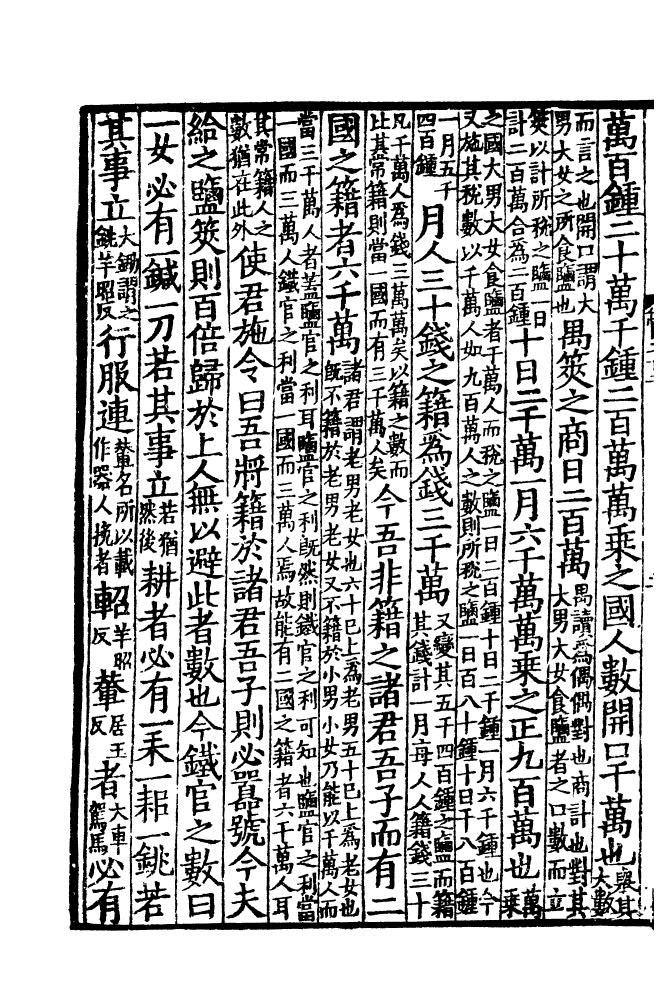 萬百鍾二十萬千鍾二百萬萬乘之國人數開口千萬也舉其大數
而言之也開口謂大男大女之所食鹽也禺筴之商日二百萬禺讀爲偶偶對也商計也對其大男大女食鹽者之口數而立
筴以計所稅之鹽一日計二百萬合爲二百鍾十日二千萬一月六千萬萬乘之正九百萬也萬乘
之國大男大女食鹽者千萬人而稅之鹽一日二百鍾十日二千鍾一月六千鍾也今又施其稅數以千萬人如九百萬人之數則所稅之鹽一日百八十鍾十日千八百鍾
一月五千四百鍾月人三十錢之籍爲錢三千萬又變其五千四百鍾之鹽而籍其錢計一月每人人籍錢三十
凡千萬人爲錢三萬萬矣以籍之數而比其常籍則當一國而有三千萬人矣今吾非籍之諸君吾子而有二
國之籍者六千萬諸君謂老男老女也六十已上爲老男五十已上爲老女也既不籍於老男老女又不籍於小男小女乃能以千萬人而
當三千萬人者蓋鹽官之利耳鹽官之利既然則鐵官之利可知也鹽官之利當一國而三萬人鐵官之利當一國而三萬人焉故能有二國之籍者六千萬人耳
其常籍人之數猶在此外使君施令曰吾將籍於諸君吾子則必囂號今夫
給之鹽筴則百倍歸於上人無以避此者數也今鐵官之數曰
一女必有一鍼一刀若其事立若猶然後耕者必有一耒一耜一銚若
其事立大鋤謂之銚羊昭反行服連輦名所以載作器人挽者軺羊昭反輦居玉反者大車駕馬必有